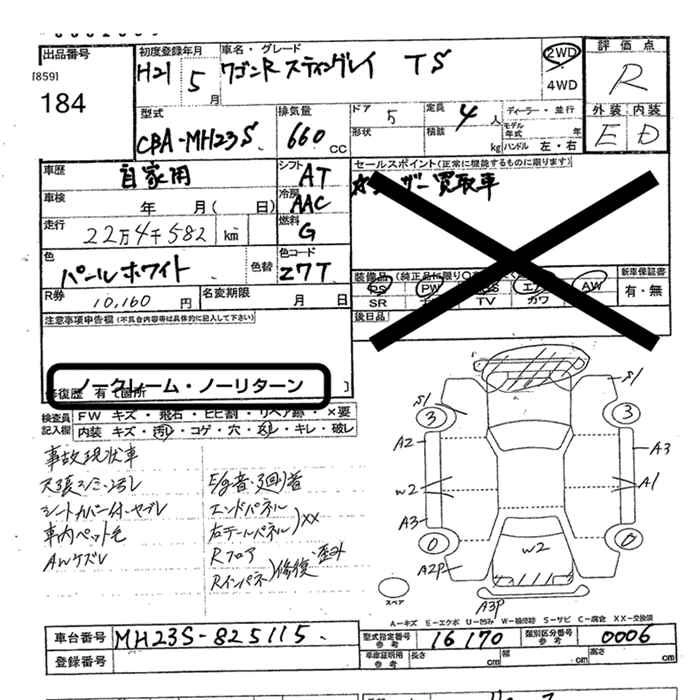 出品番号
[859]
184
初度登録年月
H21 5月
車名・グレード
ワゴンR スティングレイ TS
2WD
4WD
評価点
R
外装 内装
E D
型式
CBA-MH23S
排気量
660 CC
ドア 5
形状
定員 4人
積載 kg
ディーラー・並行
モデル年式 年
ハンドル 左・右
車歴 自家用
シフト AT
車検 年 月( 日)
冷房 AAC
走行 22万4千582 km
燃料 G
色 パールホワイト 色替
色コード Z7T
R券 10,160 円
名変期限 月 日
セールスポイント(正常に機能するものに限ります)
ユーザー買取車
装備品(純正品に限り
PS PW エア AW
SR TV カワ
新車保証書
有・無
後日品
注意事項申告欄(不具合内容は具体的に記入して下さい)
ノークレーム・ノーリターン
修復歴 有 箇所 ]
検査員記入欄
FW キズ・飛石・ヒビ割・リペア跡・×要
内装 キズ・汚れ・コゲ・穴・凹・キレ・破レ
事故現状車
天張シミ・汚レ
シートカバー付・ヤブレ
車内ペット毛
AWケズレ
E/g音・3回り音
エンドパネル
右テールパネル)XX
Rフロア
Rインパネ)修復・歪み
S1 S1
3 3
A2 A3
W2 A1
A3
0 0
A2P W2
A3P
スペア
A-キズ E-エクボ U-凹み W-補修跡 S-サビ C-腐食 XX-交換済
車台番号 MH23S-825115
型式指定番号 参考 16170
類別区分番号 参考 0006
登録番号
車庫証明用 参考 長さ cm 幅 cm 高さ cm